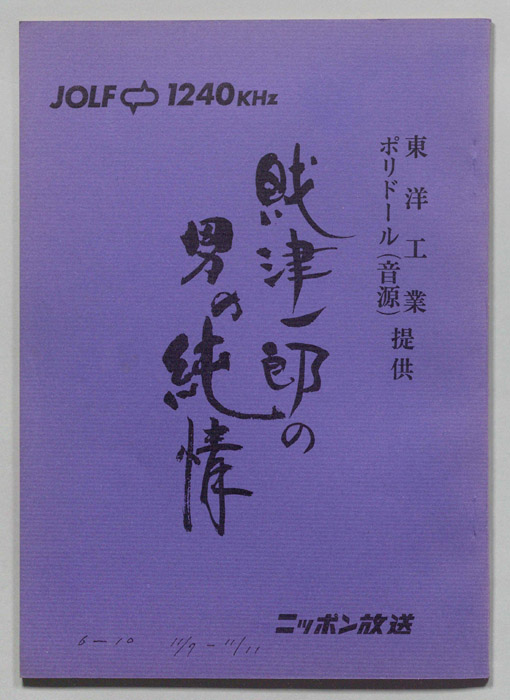 JOLF 1240KHz
東洋工業
ポリドール(音源)提供
財津一郎の
男の純情
ニッポン放送
6-10 11/7-11/11